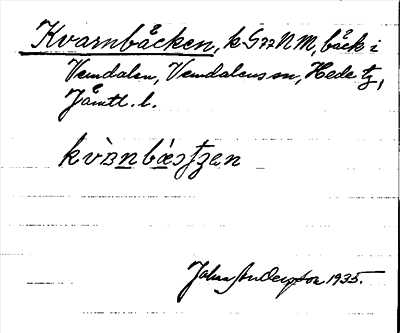 Kvarnbäcken, k G22 NM, bäck i
Vemdalen, Vemdalens sn, Hede tg,
Jämtl. l.
John Anderson 1935.